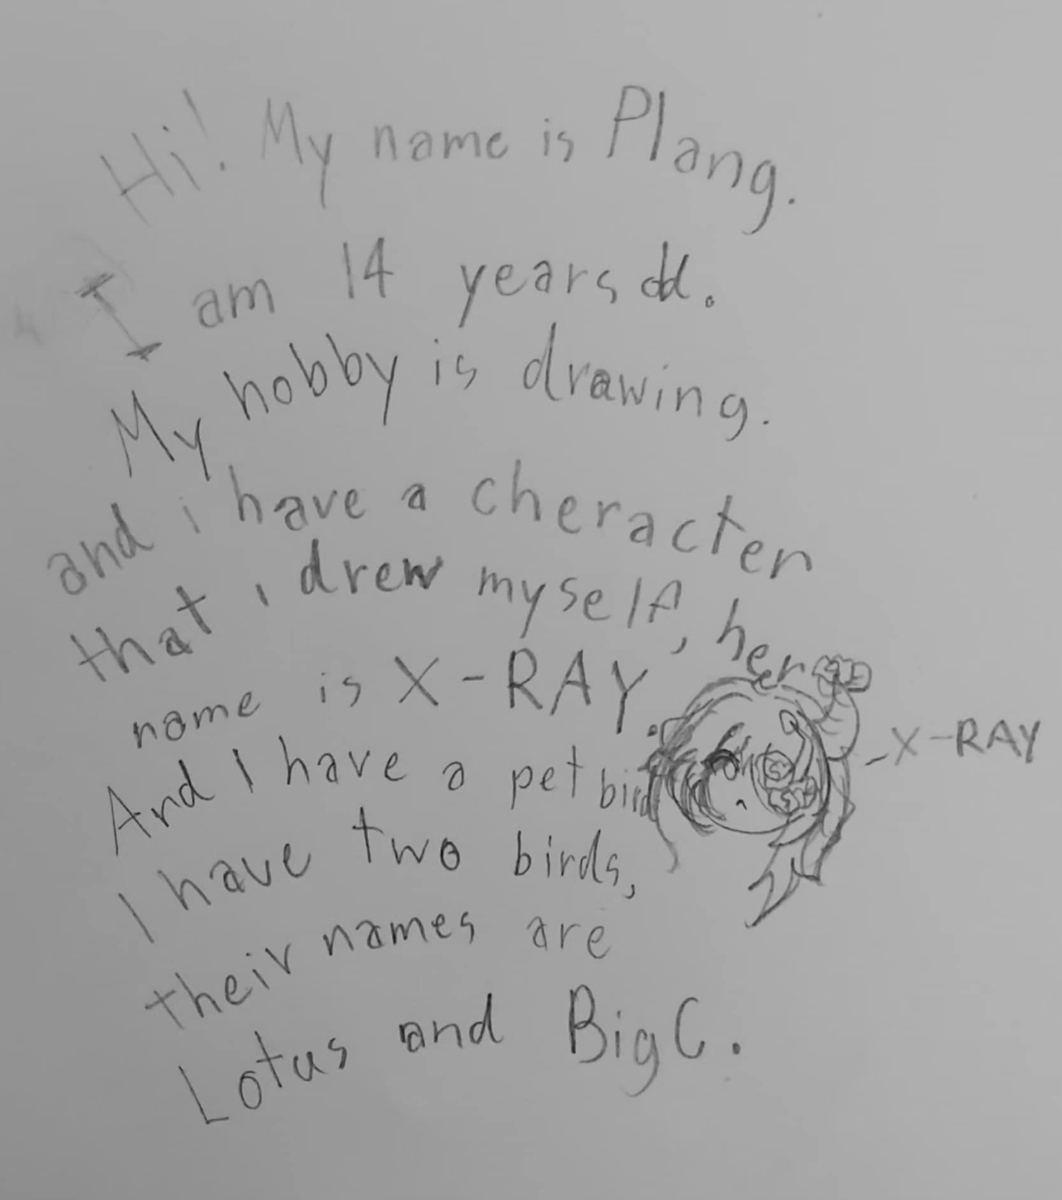 Hi! My name is Plang.
I am 14 years old.
My hobby is drawing.
and i have a cheracter
that i drew myself, her
name is X-RAY.
X-RAY
And I have a pet bird
I have two birds,
their names are
Lotus and BigC.